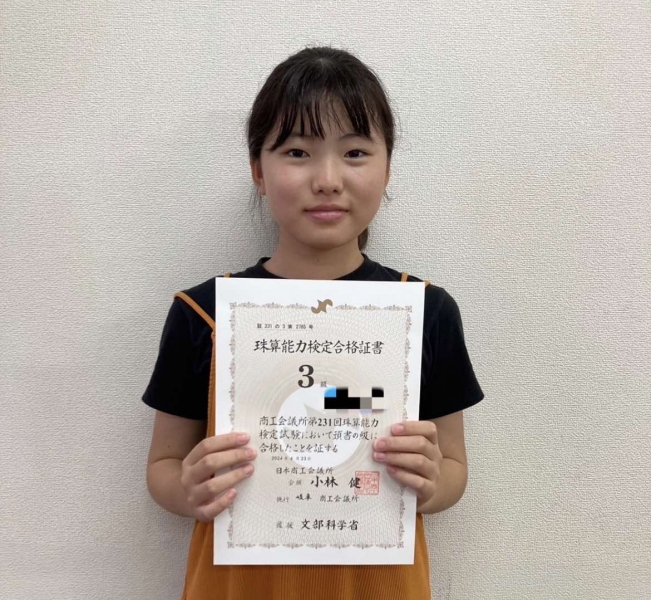 証 231 の 3 第 2765 号
珠算能力検定合格証書
3 級
商工会議所第231回珠算能力
検定試験において頭書の級に
合格したことを証する
2024年 6月23日
日本商工会議所
会頭 小林 健
執行 岐阜 商工会議所
後援 文部科学省